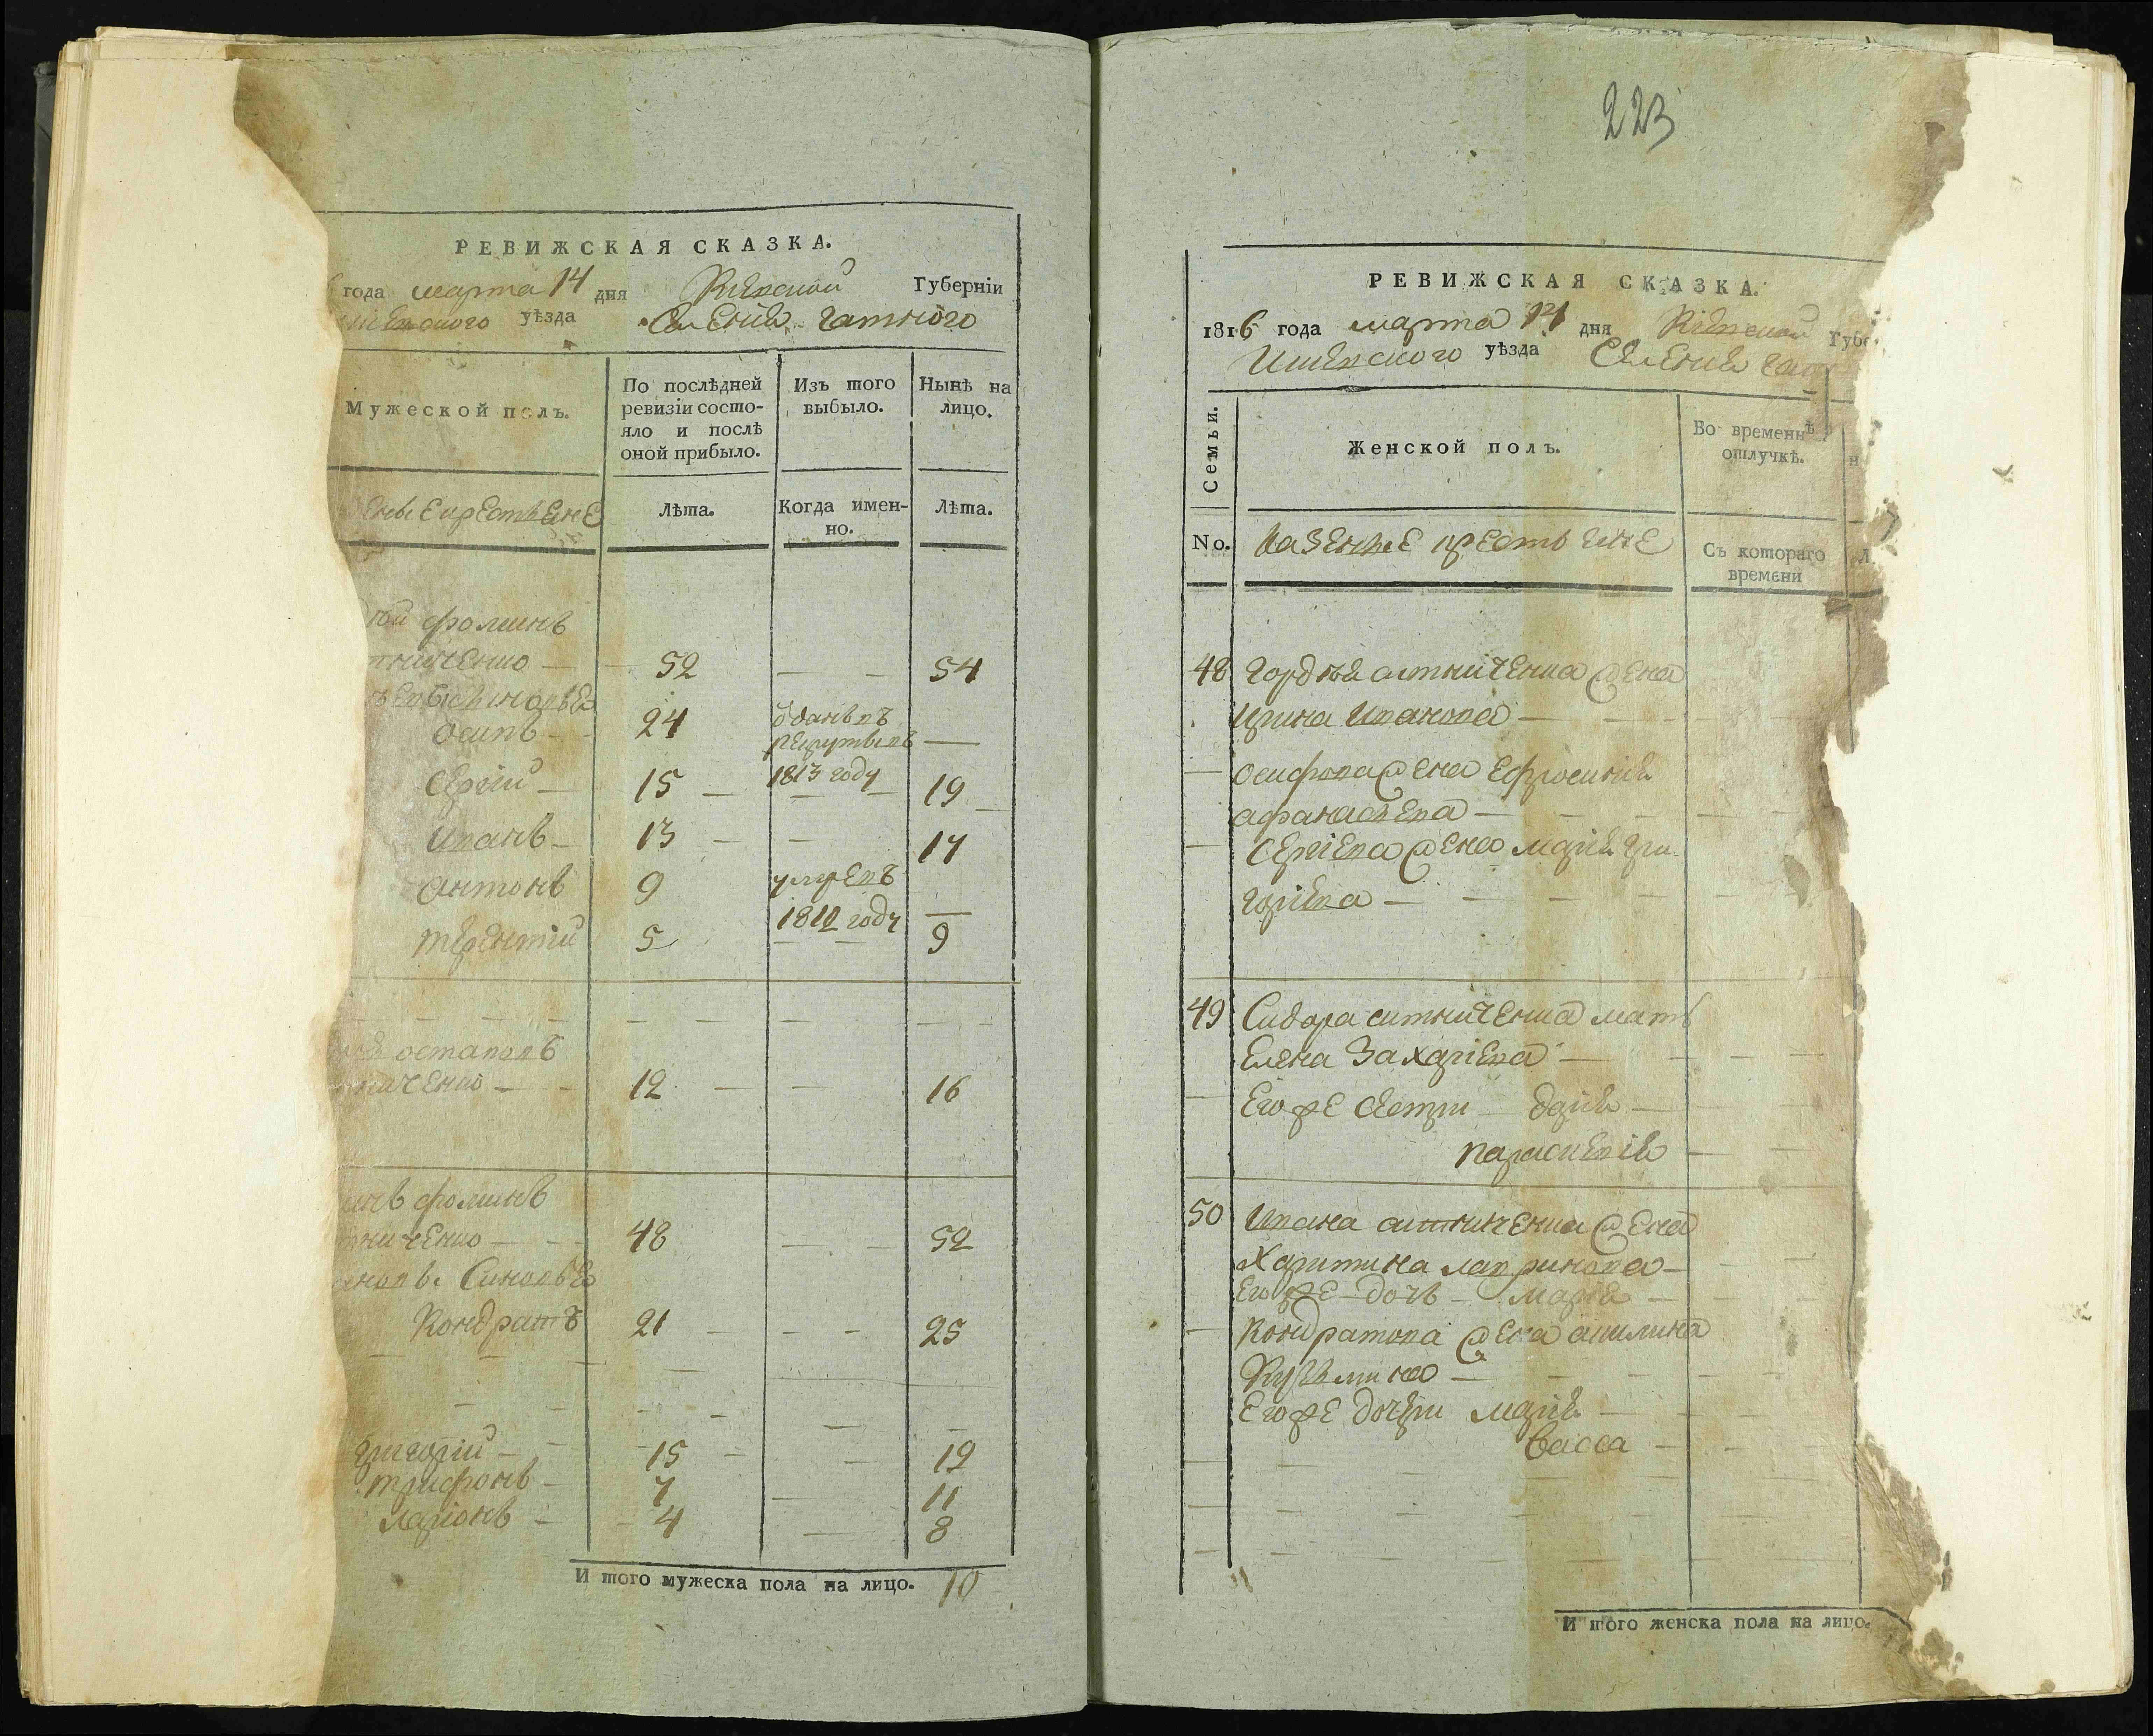 РЕВИЖСКАЯ СКАЗКА.
года марта 14 дня Кіевской Губерніи
уѣзда Селенія гатного
Мужеской полъ.
По послѣдней
ревизіи состо-
яло и послѣ
оной прибыло.
Изъ того
выбыло.
Нынѣ на
лицо.
Лѣта.
Когда имен-
но.
Лѣта.
фоминъ
52 — — 54
осипъ — 24 оданъ въ
рекруты въ —
1813 году
Сергій — 15 — — 19
иванъ — 13 — — 17
антонъ 9 умре въ
1812 году —
терентій 5 — — 9
остаповъ
12 — — 16
фоминъ
48 — — 52
Синовья
Кондратъ 21 — — 25
григорій — 15 — — 19
трифонъ — 7 — 11
ларіонъ — 4 — 8
И того мужеска пола на лицо. 10
223
РЕВИЖСКАЯ СКАЗКА.
1816 года марта 14 дня Кіевской Губе
уѣзда Селенія гат
Семьи.
Женской полъ.
Во временнѣ
отлучкѣ.
No.
Казенные крестьяне
Съ котораго
времени
48 гордѣя ситниченка жена
ирина иванова —
— осифова жена ефросинія
афанасиева —
— Сергіева жена марія гри
горіева —
49 Сидора ситниченка мать
Елена Захаріева —
— Его же сестри — дарія —
параскевія
50 Ивана ситниченка жена
Харитина лавринова —
Его же дочь — марія —
— Кондратова жена акилина
Кузьмина —
Его же дочери марія —
васса —
И того женска пола на лицо.